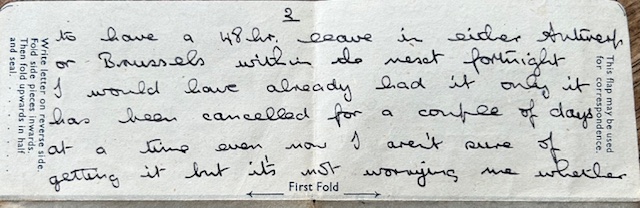 2
to have a 48 hr. leave in either Antwerp
or Brussels within de next fortnight
I would have already had it only it
has been cancelled for a couple of days
at a time even now I aren't sure of
getting it but it's not worrying me whether
First Fold
Write letter on reverse side.
Fold side pieces inwards.
Then fold upwards in half
and seal.
This flap may be used
for correspondence.